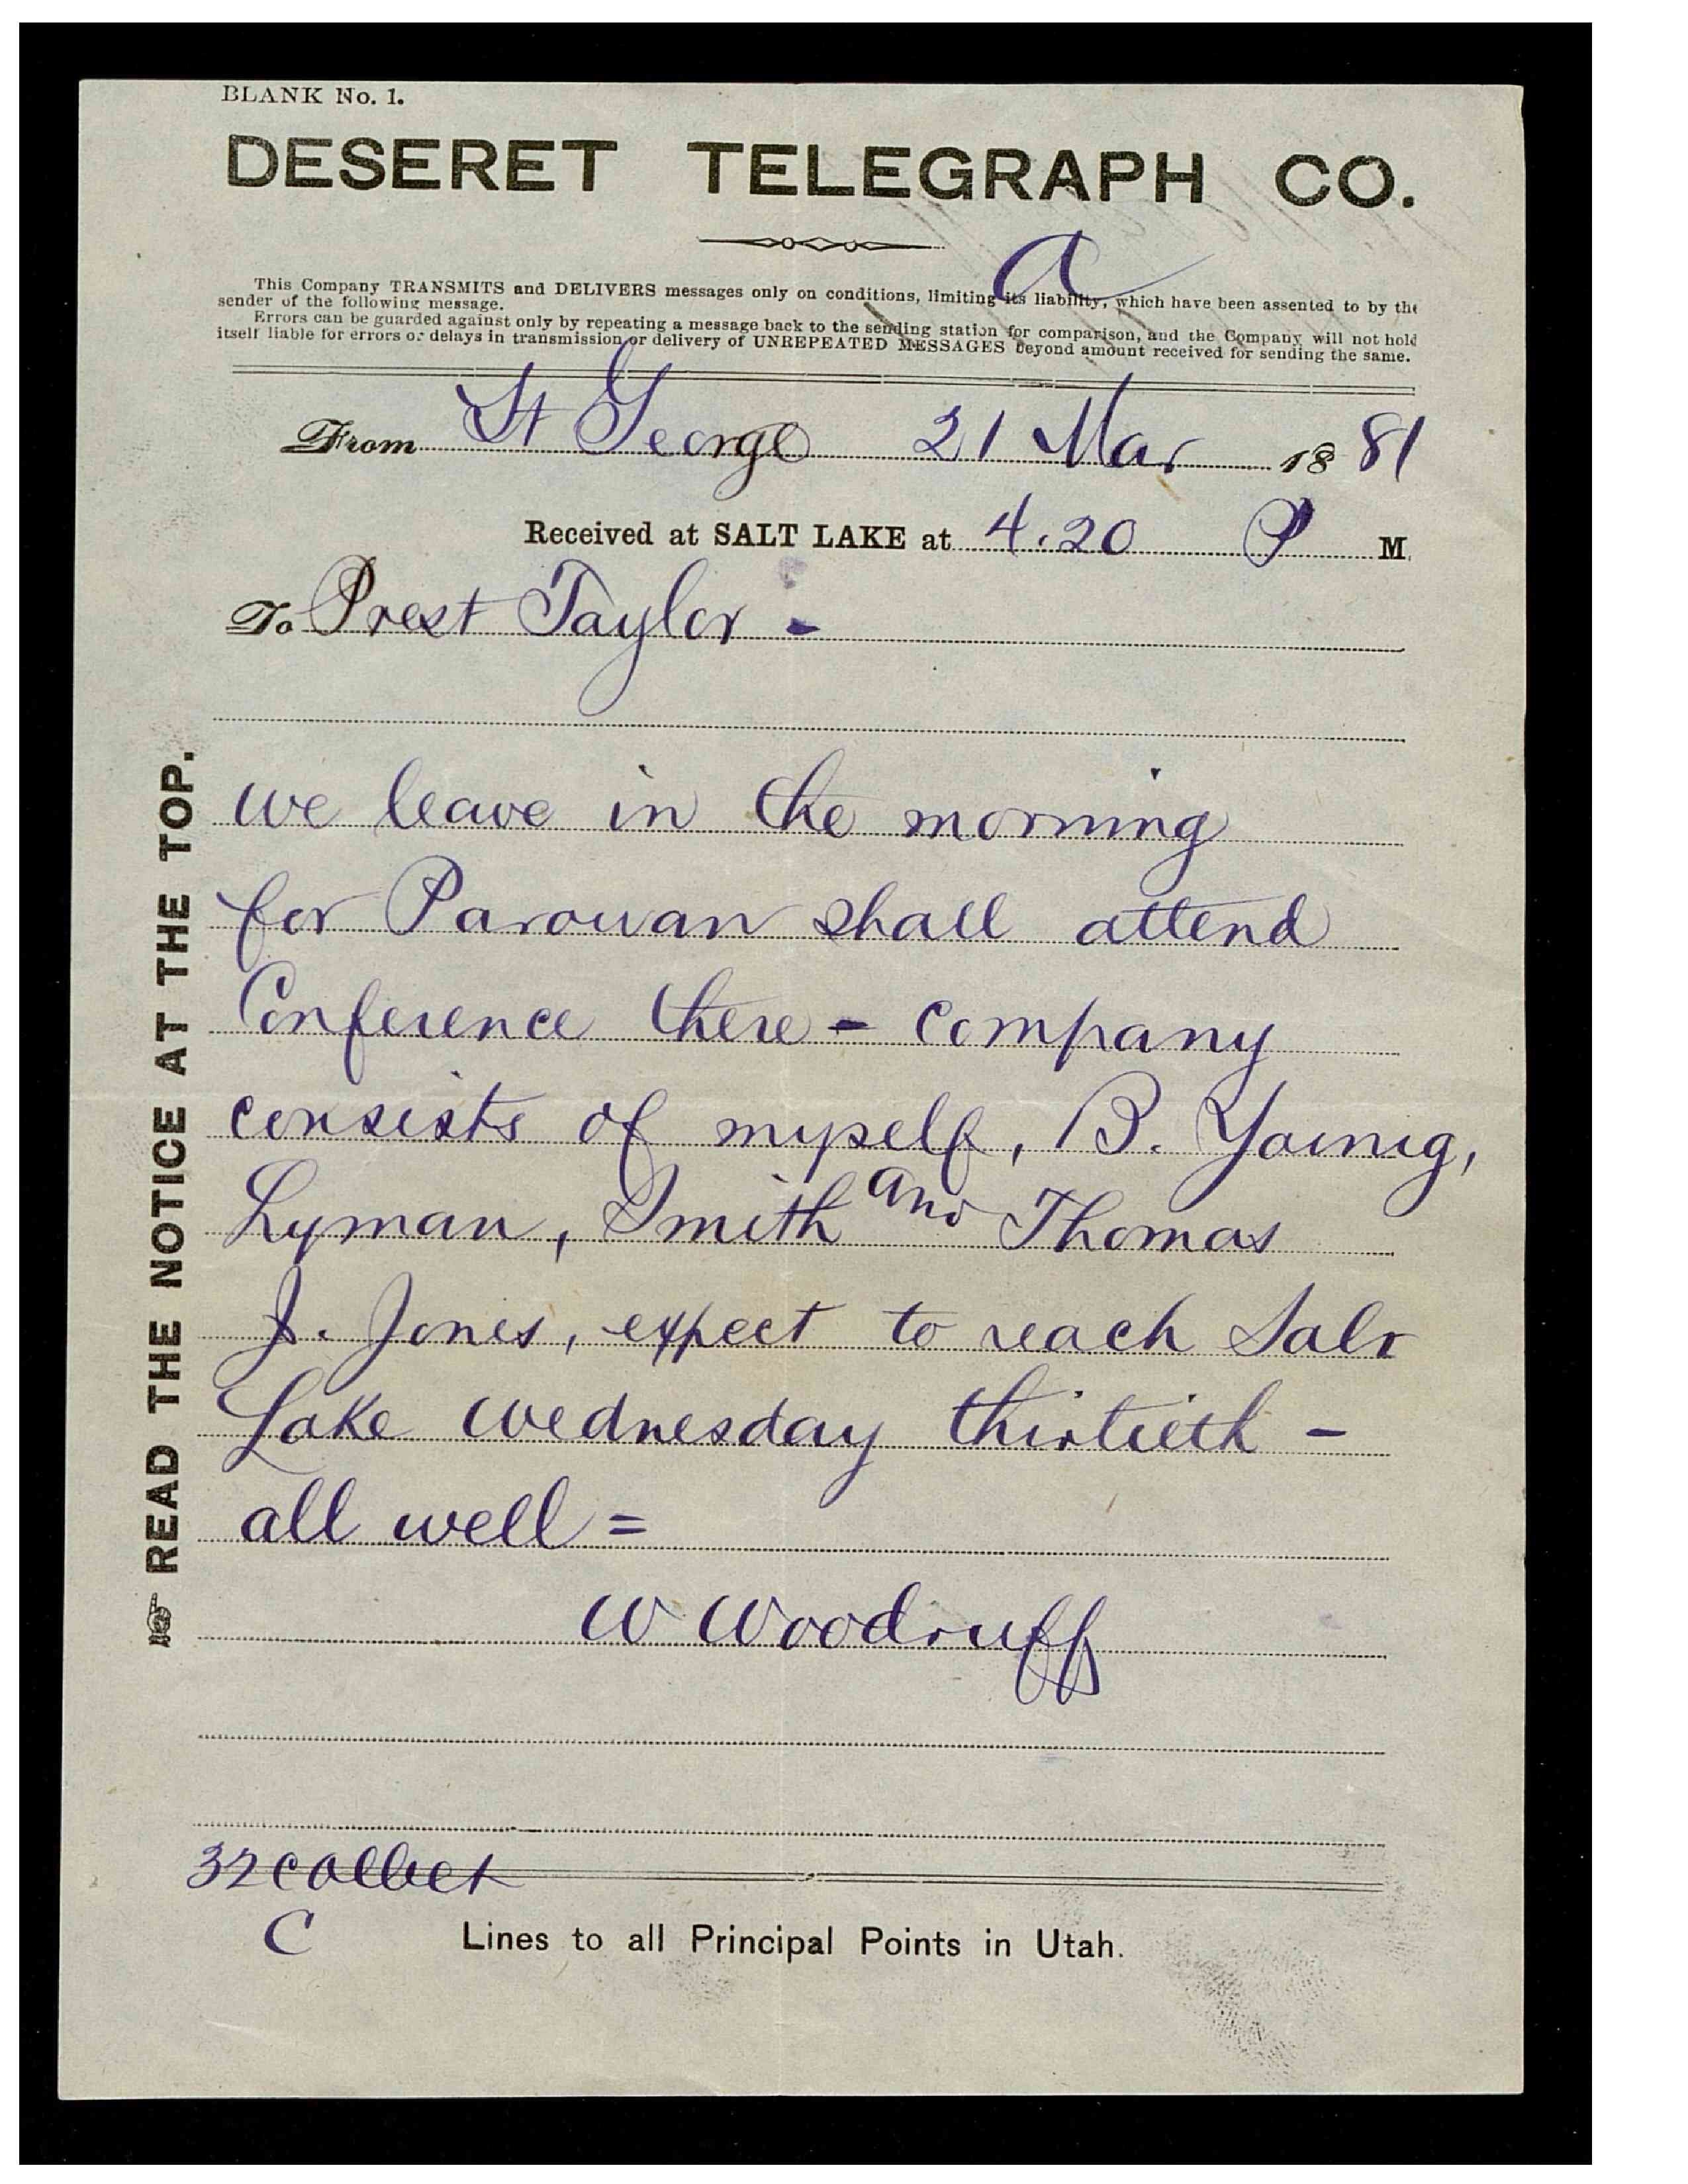 BLANK No. 1.
DESERET TELEGRAPH CO.
a
This Company TRANSMITS and DELIVERS messages only on conditions, limiting its liability, which have been assented to by the
sender of the following message.
Errors can be guarded against only by repeating a message back to the sending station for comparison, and the Company will not hold
itself liable for errors or delays in transmission or delivery of UNREPEATED MESSAGES beyond amount received for sending the same.
From St George 21 Mar 1881
Received at SALT LAKE at 4.20 P M.
To Prest Taylor -
READ THE NOTICE AT THE TOP.
we leave in the morning
for Parowan shall attend
Conference there - company
consists of myself, B. Young,
Lyman, Smith and Thomas
J. Jones, expect to reach Salt
Lake wednesday thirtieth -
all well =
W Woodruff
32 collect
C
Lines to all Principal Points in Utah.